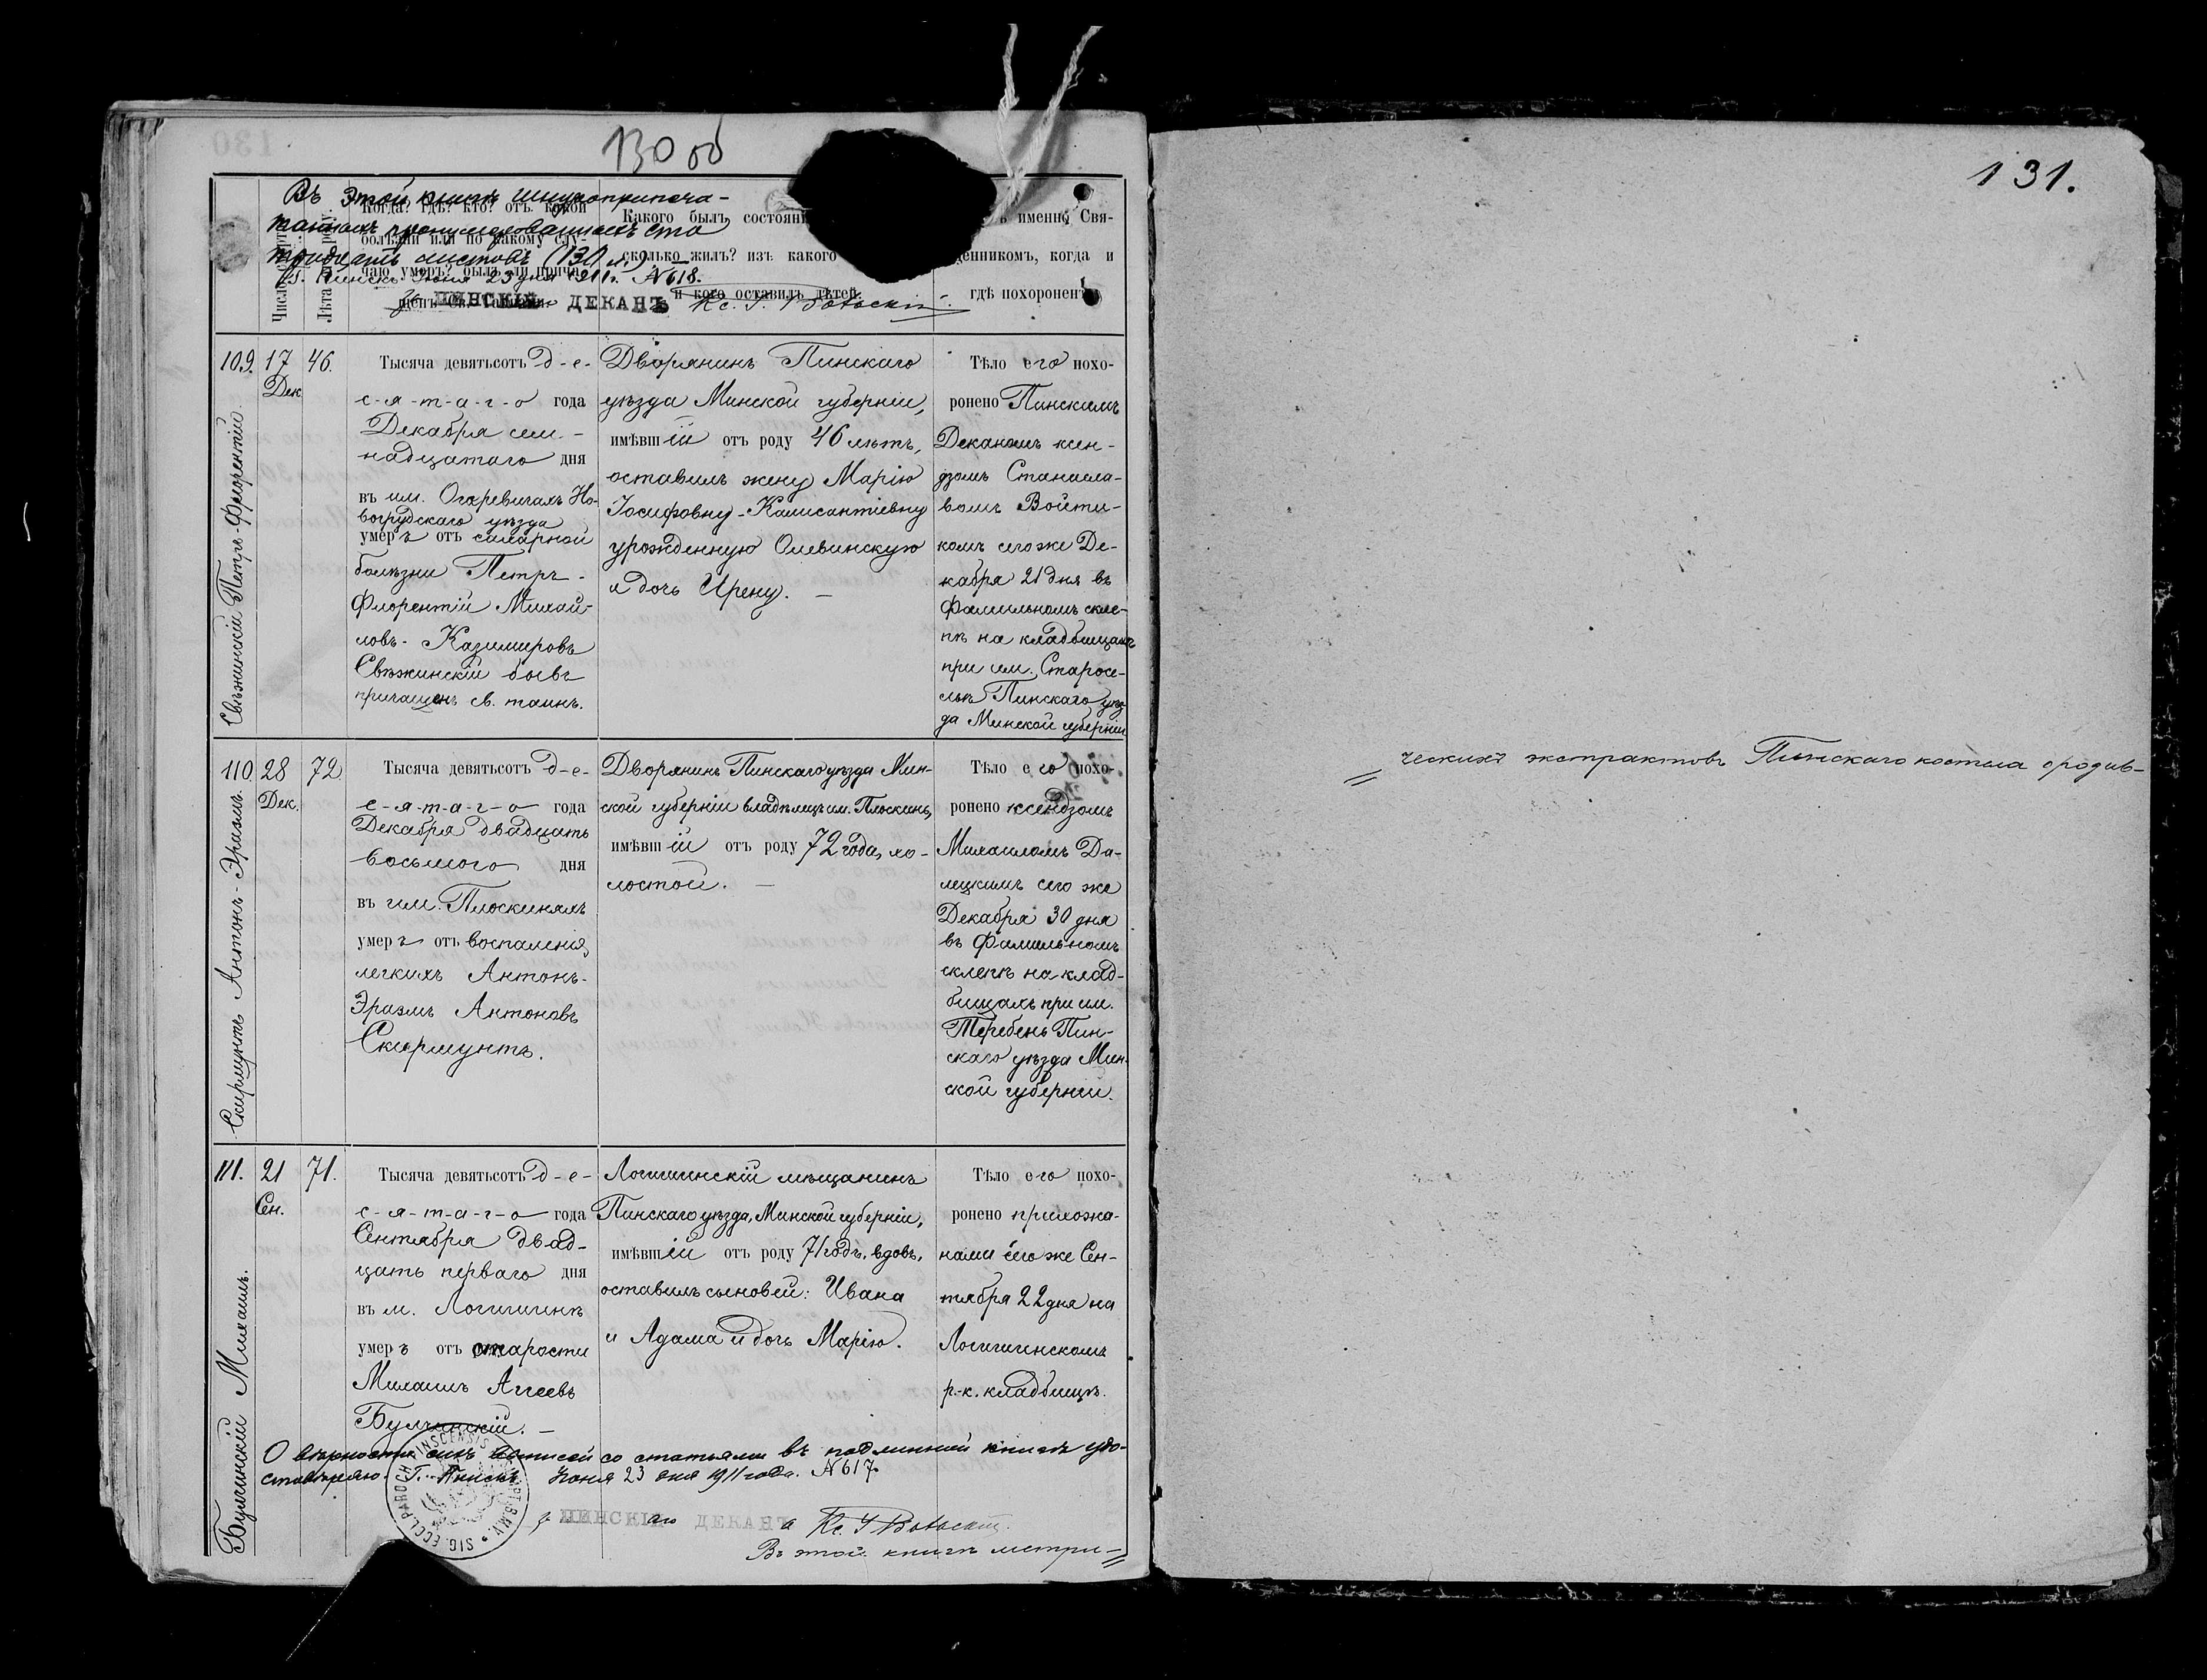 130 об
Въ этой книгѣ шнуроприпеча-
танныхъ пронумерованныхъ сто
тридцать листовъ (130 л.)
г. Пинскъ Іюня 23 дня 1911 г. № 618.
ПИНСКІЙ ДЕКАНЪ Кс.
Когда? гдѣ? кто? отъ какой
болѣзни или по какому слу-
чаю умеръ? былъ ли прича-
щенъ Св. Таинъ.
Какого былъ состоян
сколько жилъ? изъ какого
и кого оставилъ дѣтей.
именно Свя-
щенникомъ, когда и
гдѣ похороненъ
109. 17 Дек. 46.
Свѣжинскій Петръ Флорентій
Тысяча девятьсотъ д-е-
с-я-т-а-г-о года
Декабря сем-
надцатаго дня
въ им. Огаревичахъ Но-
вогрудскаго уѣзда
умеръ отъ
болѣзни Петръ-
Флорентій Михай-
ловъ-Казимировъ
Свѣжинскій бывъ
причащенъ св. таинъ.
Дворянинъ Пинскаго
уѣзда Минской губерніи,
имѣвшій отъ роду 46 лѣтъ,
оставилъ жену Марію
Іосифовну-Калисантіевну
урожденную Олевинскую
и дочь Ирену. —
Тѣло его похо-
ронено Пинскимъ
Деканомъ ксен-
дзомъ Станисла-
вомъ Войти-
комъ сего же Де-
кабря 21 дня въ
фамильномъ скле-
пѣ на кладбищахъ
при им. Старосе-
лье Пинскаго уѣз-
да Минской губерніи
110. 28 Дек. 72
Скирмунтъ Антонъ-Эразмъ.
Тысяча девятьсотъ д-е-
с-я-т-а-г-о года
Декабря двадцать
восьмого дня
въ им. Плоскиняхъ
умеръ отъ воспаленія
легкихъ Антонъ-
Эразмъ Антоновъ
Скирмунтъ.
Дворянинъ Пинскаго уѣзда Мин-
ской губерніи владѣлецъ им. Плоскинь,
имѣвшій отъ роду 72 года, хо-
лостой. —
Тѣло его похо-
ронено ксендзомъ
Михаиломъ Да-
лецкимъ сего же
Декабря 30 дня
въ фамильномъ
склепѣ на клад-
бищахъ при им.
Теребень Пин-
скаго уѣзда Мин-
ской губерніи.
111. 21 Сен. 71.
Булчинскій Михаилъ.
Тысяча девятьсотъ д-е-
с-я-т-а-г-о года
Сентября двад-
цать перваго дня
въ м. Логишинѣ
умеръ отъ старости
Михаилъ Аггеевъ
Булчинскій. —
Логишинскій мѣщанинъ
Пинскаго уѣзда, Минской губерніи,
имѣвшій отъ роду 71 годъ, вдовъ,
оставилъ сыновей: Ивана
и Адама и дочь Марію.
Тѣло его похо-
ронено прихожа-
нами сего же Сен-
тября 22 дня на
Логишинскомъ
р.-к. кладбищѣ.
О вѣрности сихъ записей со статьями въ подлинной книгѣ удо-
стовѣряю. Г. Пинскъ Іюня 23 дня 1911 года. № 617
ПИНСКІЙ ДЕКАНЪ Кс.
Въ этой книгѣ метри-
131.
ческихъ экстрактовъ Пинскаго костела о родив-